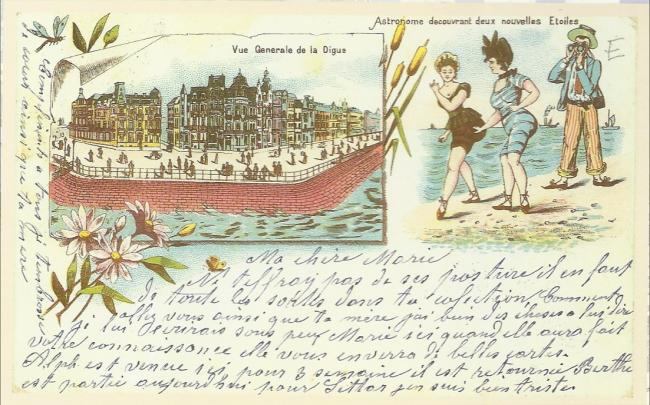 Astronome decouvrant deux nouvelles Etoiles
Vue Generale de la Digue
E
Ma chère Marie
N't'effray pas de ses posture il en faut
de toute les sortes dans ta colection Comment
allez vous ainsi que ta mère j'ai bien des choses a lui dire
je lui decrirais sous peu Marie ici quand elle aura fait
votre connaissance elle vous enverra de belles cartes
Alph est venue ici pour 3 semaine il est retournée Berthe
est partie aujourd'hui pour j'en suis bien triste
a tous j't'embrasse
de coeur ainsi que ta mère